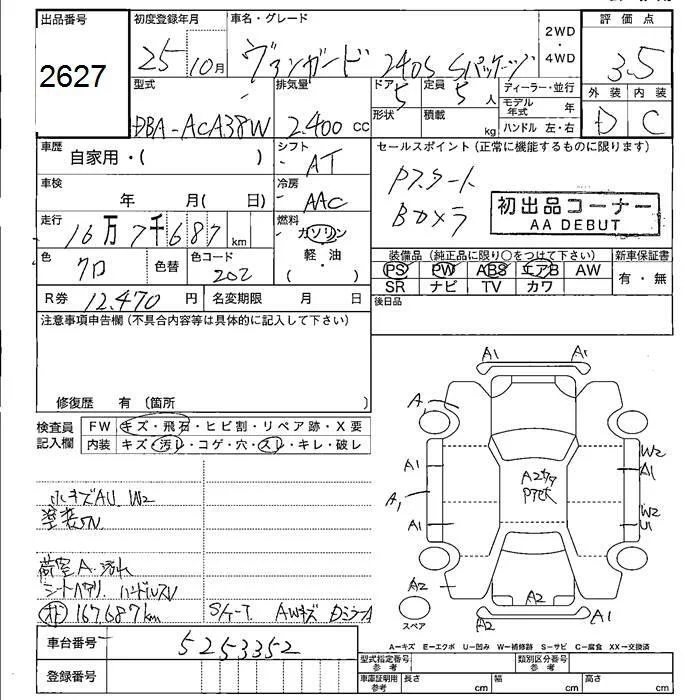 出品番号
2627
初度登録年月
25 10月
車名・グレード
ヴァンガード 240S Sパッケージ
2WD
・
4WD
評価点
3.5
外装 内装
D C
型式
DBA-ACA38W
排気量
2.400 cc
ドア 5
形状
定員 5 人
積載 kg
ディーラー・並行
モデル年式 年
ハンドル 左・右
車歴
自家用・( )
シフト
AT
セールスポイント(正常に機能するものに限ります)
Pスタート
Bカメラ
初出品コーナー
AA DEBUT
車検
年 月( 日)
冷房
AAC
走行
16万7千687 km
燃料
ガソリン
軽・油
( )
色
クロ
色替
色コード
202
装備品(純正品に限り○をつけて下さい)
PS PW ABS エアB AW
SR ナビ TV カワ
新車保証書
有・無
R券 12,470 円
名変期限 月 日
後日品
注意事項申告欄(不具合内容等は具体的に記入して下さい)
修復歴 有 (箇所 )
検査員
記入欄
FW キズ・飛石・ヒビ割・リペア跡・X要
内装 キズ・汚レ・コゲ・穴・スレ・キレ・破レ
小キズAU W2
荷室A 汚れ
シートヘタリ ハンドルスレ
167.687km
AWキズ
A1 A1
A1
A1
A1
A1
A2
W2
A1
W2
A2
A2
A2
A1
スペア
A=キズ E=エクボ U=凹み W=補修跡 S=サビ C=腐食 XX=交換済
車台番号
5253352
登録番号
型式指定番号
参考
類別区分番号
参考
車庫証明用
参考
長さ cm
幅 cm
高さ cm